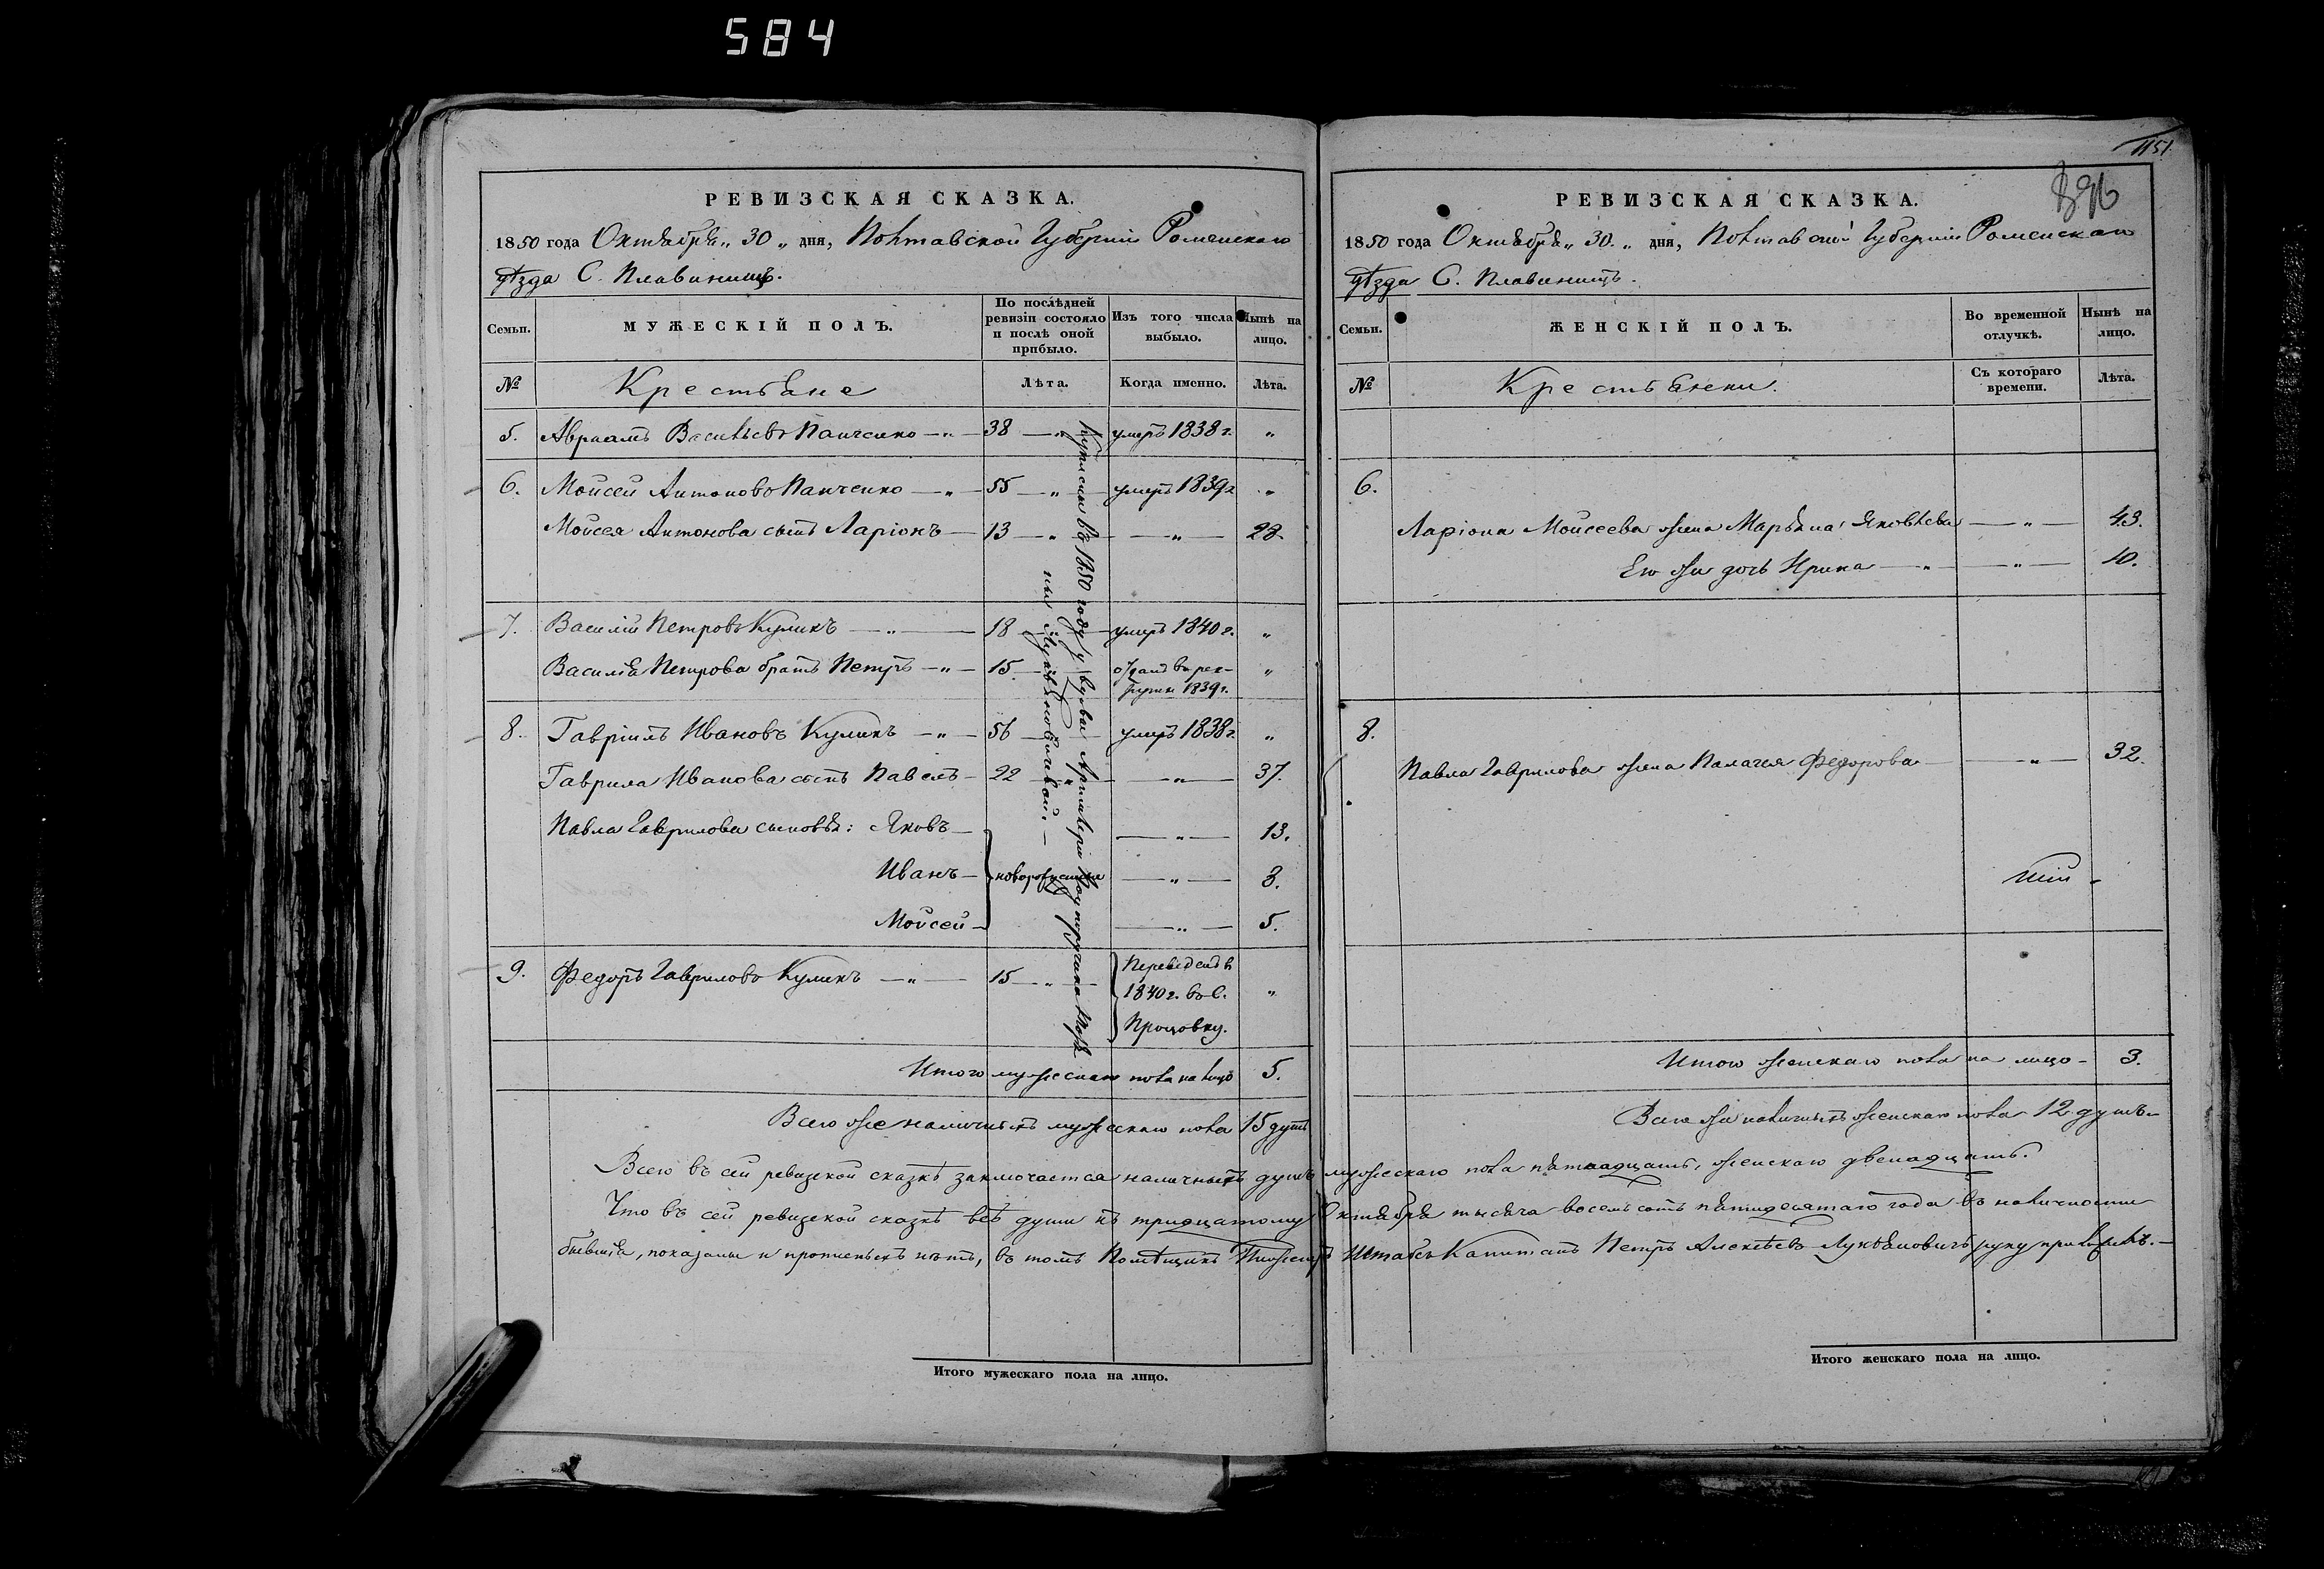 584
РЕВИЗСКАЯ СКАЗКА.
1850 года Октября „ 30 „ дня, Полтавской Губерніи Роменскаго
уѣзда С. Плавинищъ.
Семьи.
МУЖЕСКІЙ ПОЛЪ.
По послѣдней ревизіи состояло и послѣ оной прибыло.
Изъ того числа выбыло.
Нынѣ на лицо.
№
Крестьяне
Лѣта.
Когда именно.
Лѣта.
5. Авраамъ Васильевъ Панченко — „ — 38 — „ — умеръ 1838 г. „
6. Мойсей Антоновъ Панченко — „ — 55 — „ — умеръ 1839 г. „
Мойсея Антонова сынъ Ларіонъ — 13 — „ — — „ — 28.
7. Василій Петровъ Куликъ — „ — 18 — „ — умеръ 1840 г. „
Василія Петрова братъ Петръ — „ — 15. отданъ въ рек-
руты 1839 г. „
8. Гавріилъ Ивановъ Куликъ — „ — 56 — умеръ 1838 г. „
Гаврила Иванова сынъ Павелъ — 22 — „ — — „ — 37.
Павла Гаврилова сыновья: Яковъ — — „ — 13.
Иванъ — новорожденные — „ — 3.
Мойсей — — „ — 5.
9. Федоръ Гавриловъ Куликъ — „ — 15 — „ — Переведенъ въ
1840 г. въ С. „
Процовку.
Куплены въ 1850 году у вдовы Артилеріи Подпоручика
ны Лукьяновичевой. —
Итого мужескаго пола на лицо 5.
Всего же наличныхъ мужескаго пола 15 душъ
1151.
896
РЕВИЗСКАЯ СКАЗКА.
1850 года Октября „ 30. „ дня, Полтавской Губерніи Роменскаго
уѣзда С. Плавинищъ.
Семьи.
ЖЕНСКІЙ ПОЛЪ.
Во временной отлучкѣ.
Нынѣ на лицо.
№
Крестьянки.
Съ котораго времени.
Лѣта.
6.
Ларіона Мойсеева жена Марьяна Яковлева — „ — 43.
Его же дочь Ирина — „ — — „ — 10.
8.
Павла Гаврилова жена Палагея Федорова — — „ — 32.
Итого женскаго пола на лицо — 3.
Всего же наличныхъ женскаго пола 12 душъ —
Всего въ сей ревизской сказкѣ заключается наличныхъ душъ мужескаго пола пятнадцать, женскаго двенадцать.
Что въ сей ревизской сказкѣ всѣ души къ тридцатому Октября тысяча восемь сотъ пятидесятаго года въ наличности
бывшія, показаны и прописныхъ нѣтъ, въ томъ Помѣщикъ Штабсъ Капитанъ Петръ Алексѣевъ Лукьяновичъ руку приложилъ. —
Итого мужескаго пола на лицо.
Итого женскаго пола на лицо.